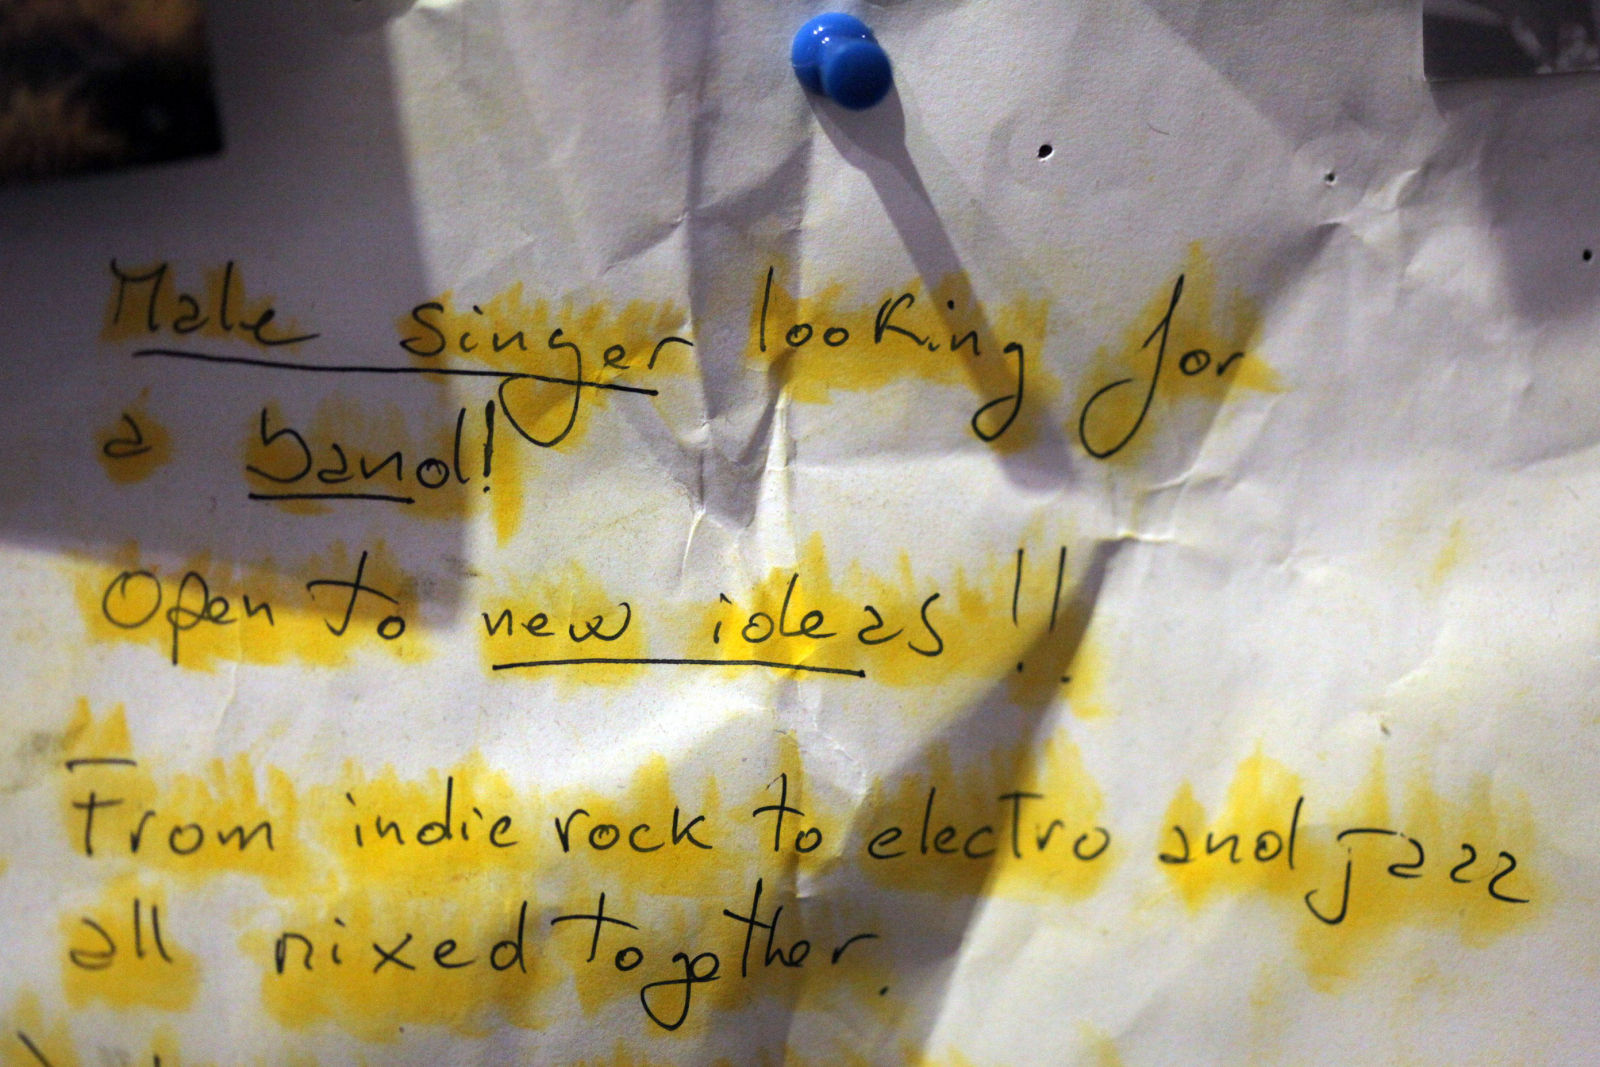 Male singer looking for
a band!
Open to new ideas !!
From indie rock to electro and jazz
all mixed together.